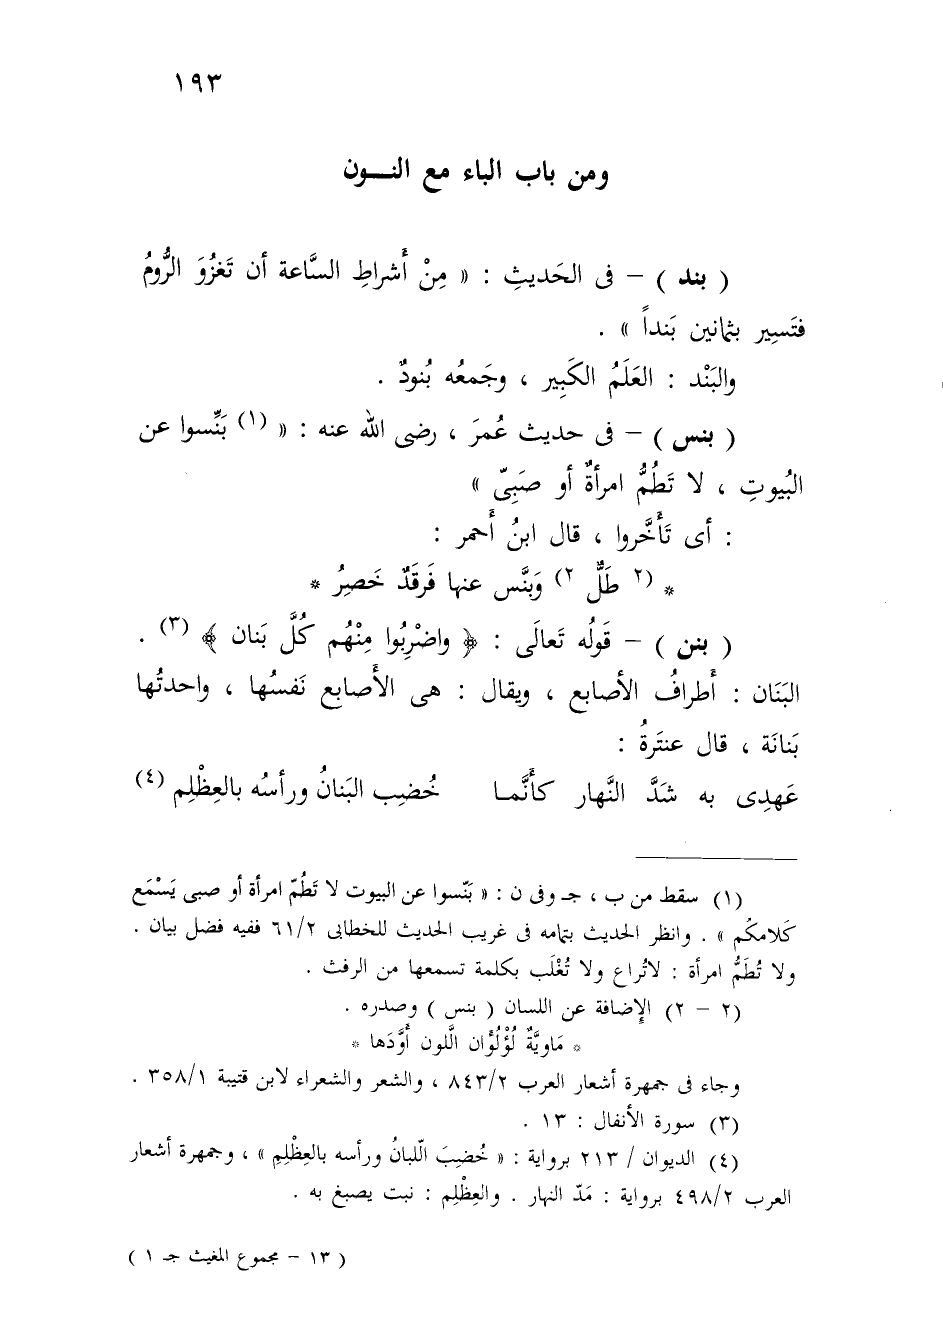 ١٩٣
ومن باب الباء مع النـــون
( بند ) – فى الحَديثِ : « مِنْ أَشراطِ السَّاعة أن تَغزُوَ الرُّومُ
فتَسِير بثمانين بَنداً » .
والبَنْد : العَلَمُ الكَبِير ، وجَمعُه بُنودٌ .
( بنس ) – فى حديث عُمرَ ، رضى الله عنه : « (١) بَنِّسوا عن
البُيوتِ ، لا تَطُمُّ امرأةٌ أو صَبِىّ »
: أى تَأَخَّروا ، قال ابنُ أَحمر :
* (٢ طَلٌّ ٢) وَبَنَّس عنها فَرقَدٌ خَصِرُ *
( بنن ) – قَولُه تَعالَى : ﴿ واضْرِبُوا مِنْهُم كُلَّ بَنان ﴾ (٣) .
البَنَان : أَطرافُ الأصابع ، ويقال : هى الأَصابع نَفسُها ، واحدتُها
بَنانَة ، قال عنتَرةُ :
عَهدِى به شَدَّ النَّهار كأَنَّمـا خُضِب البَنانُ ورأسُه بالعِظْلِم (٤)
(١) سقط من ب ، جـ وفى ن : « بَنّسوا عن البيوت لا تَطُمّ امرأة أو صبى يَسْمَع
كَلامكُم » . وانظر الحديث بتمامه فى غريب الحديث للخطابى ٦١/٢ ففيه فضل بيان .
ولا تُطَمُّ امرأة : لاتُراع ولا تُغْلَب بكلمة تسمعها من الرفث .
(٢ – ٢) الإضافة عن اللسان ( بنس ) وصدره .
* مَاوِيَّةٌ لُؤْلُؤَان الَّلون أَوَّدَها *
وجاء فى جمهرة أشعار العرب ٨٤٣/٢ ، والشعر والشعراء لابن قتيبة ٣٥٨/١ .
(٣) سورة الأنفال : ١٣ .
(٤) الديوان / ٢١٣ برواية : « خُضِبَ اللّبانُ ورأسه بالعِظْلِمِ » ، وجمهرة أشعار
العرب ٤٩٨/٢ برواية : مَدّ النهار . والعِظْلِم : نبت يصبغ به .
( ١٣ – مجموع المغيث جـ ١ )